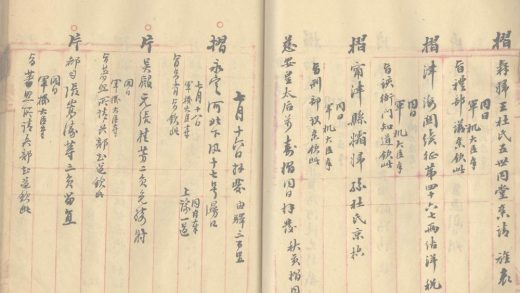 摺 婦王氏五世同堂案請旌表
同日
軍机大臣奉
旨禮部議奏欽此
摺 津海關經征第四十六七兩結洋稅
同日
軍机大臣奉
旨該衙門知道欽此
摺 甯津縣孀婦孫杜氏京控
同日
軍机大臣奉
旨刑部議奏欽此
慈安皇太后万壽摺同日拜發 摺同日
七月十六日拜發 由驛三百里
摺 永定河北下汛十七号漫口
七月十八日
軍機大臣奉
旨另有旨欽此
同日奉
上諭一道
片 吳殿元張桂芳二員免騎射
同日
軍機大臣奉
旨著照所請兵部知道欽此
片 都司張 等三員留直
同日
軍機大臣奉
旨著照所請兵部知道欽此